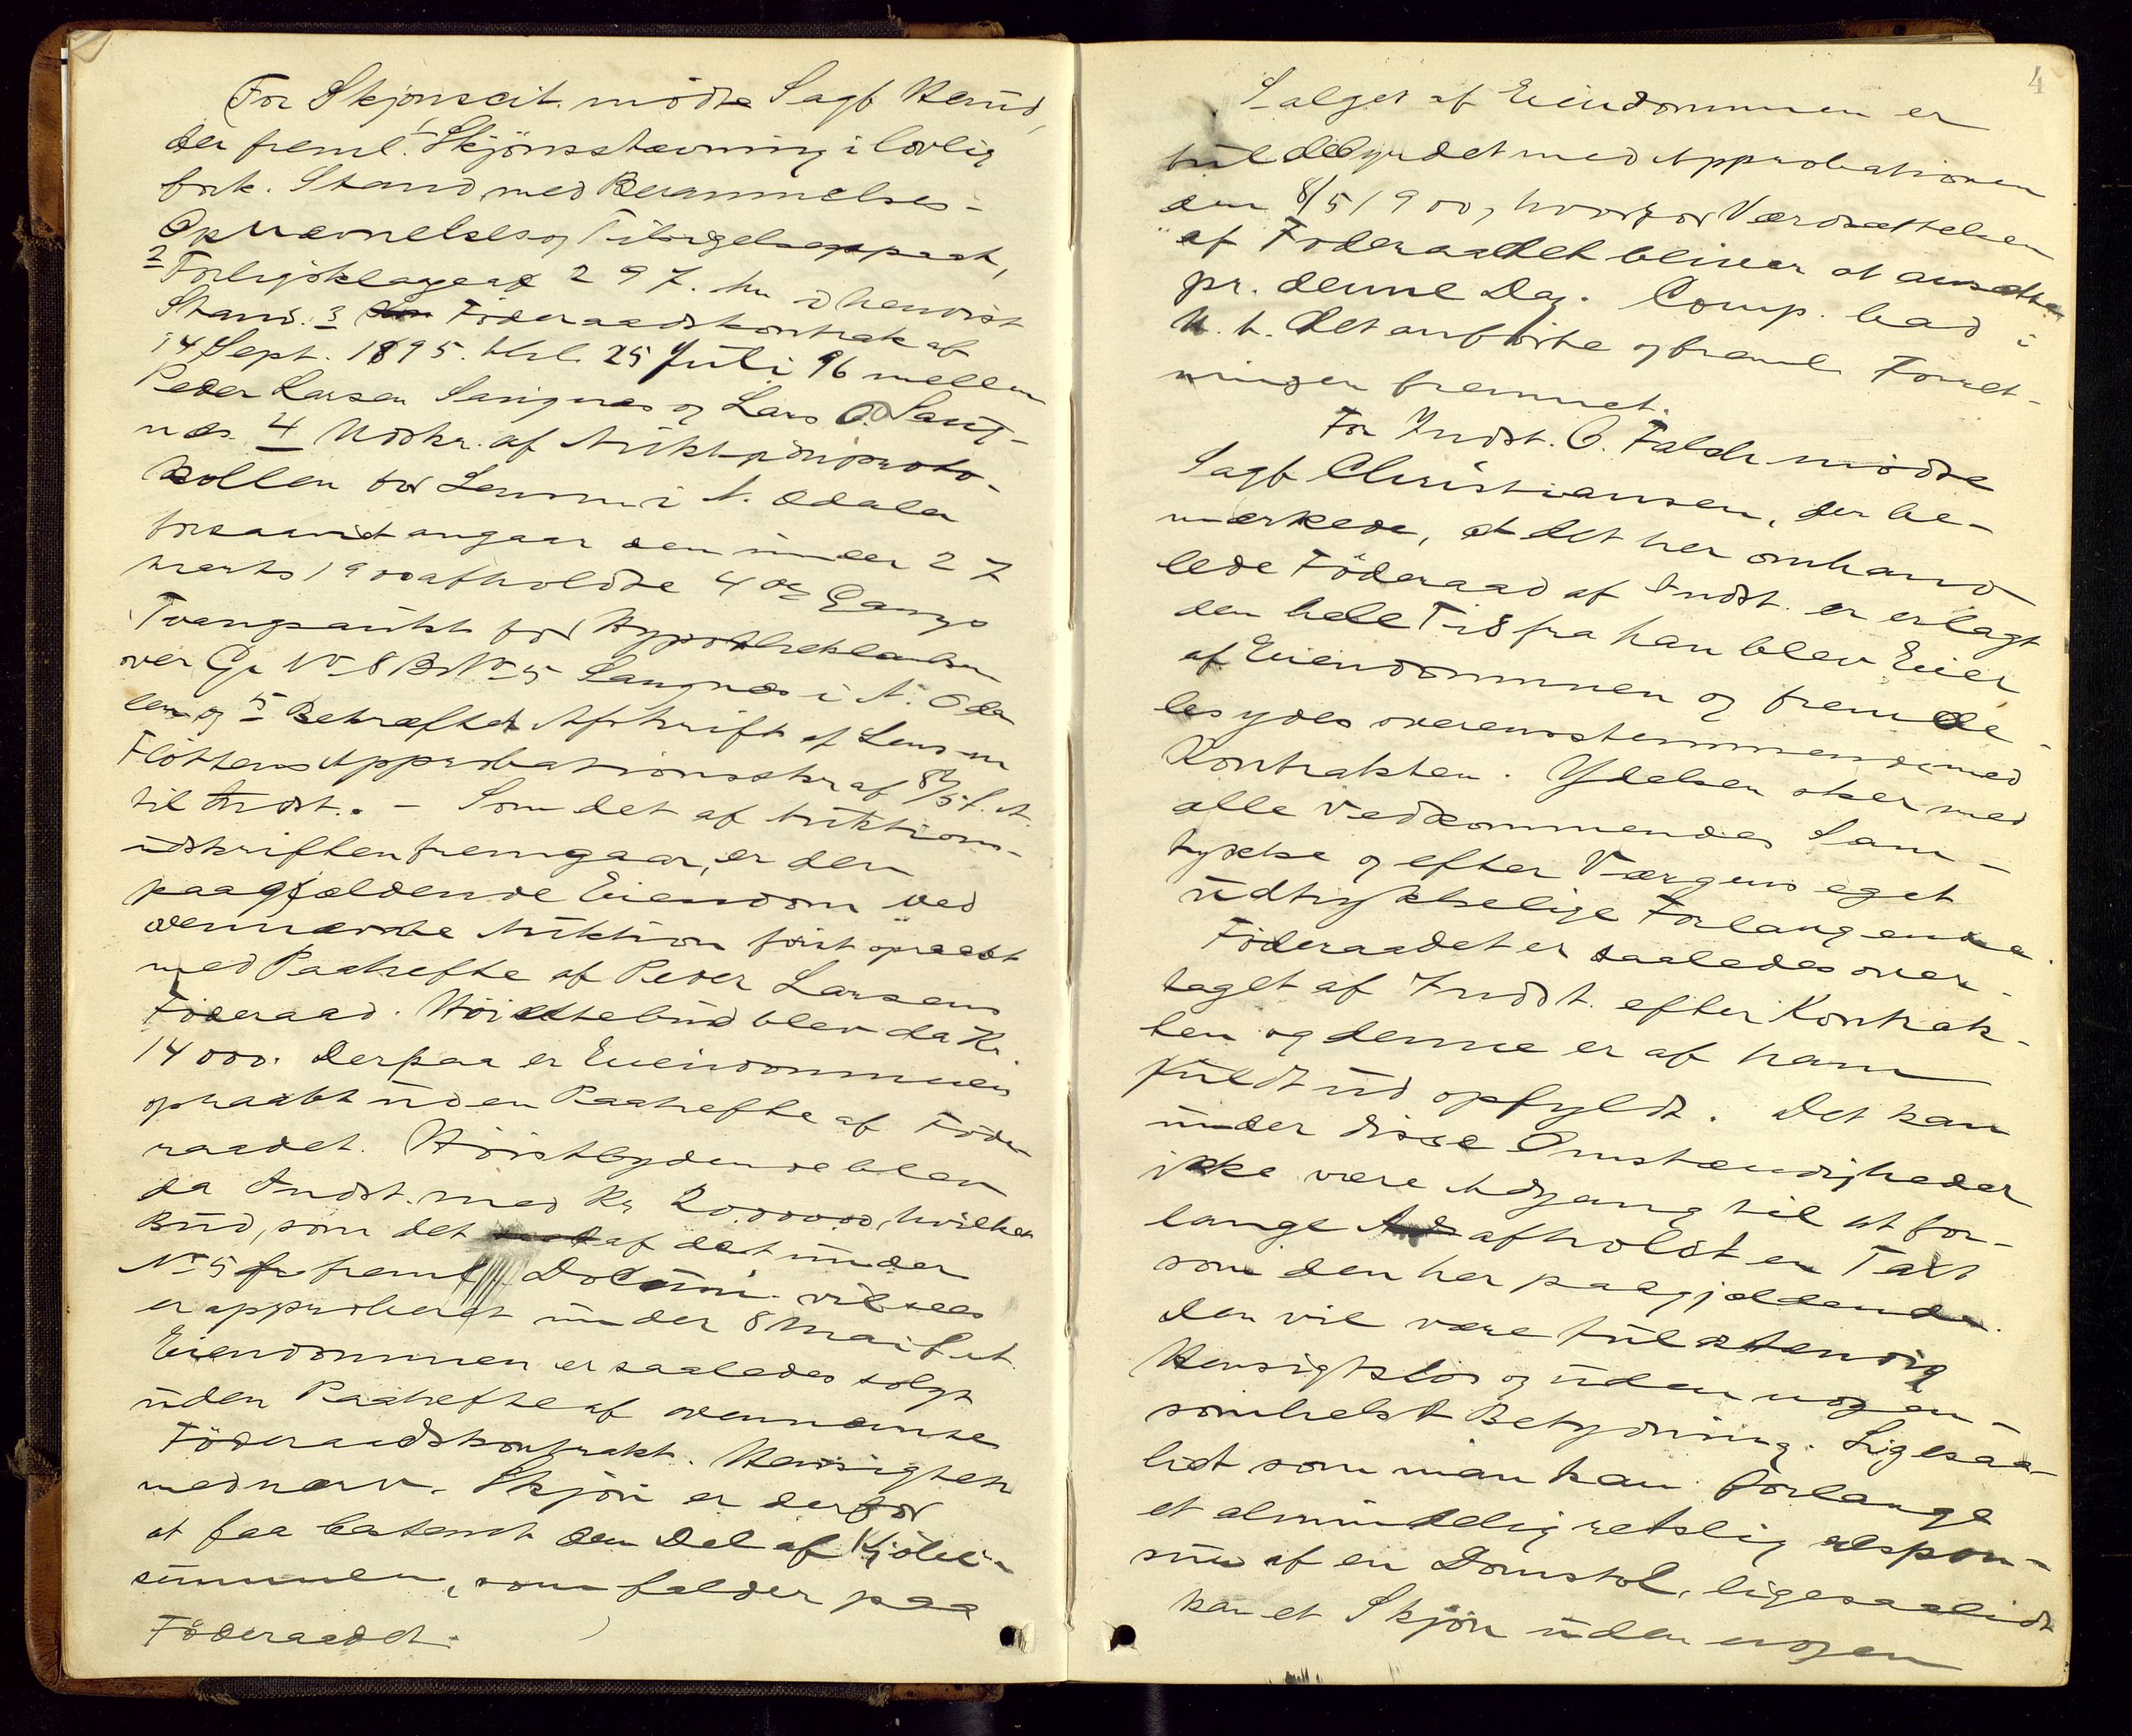 For Skjönscit. mödte Sagf. Rand,
der freml. 1 Skjönsstævning i lovlig
fork. Stand med Berammelses-
Opnævnelses og Tilsigelsespaat.,
2 Forligsklage af 29 7. hu i henvist
Stand. 3 Föderaadskontrakt af
14 Sept. 1895. thl. 25 Juli 96 mellem
Peder Larsen Sangnæs og Lars O. Sang-
næs. 4 Udskr. af Auktionsproto-
kollen for Lensm. i N. Odalen
forsaavidt angaar den under 27
Marts 1900 afholdte 4de Gangs
Tvangsaukt. for Hypothekbanken
over Gr No 8 BrNo 5 Sangnæs i N. Oda-
len og 5 Bekræftet Afskrift af Lensm
Flöttens Approbationsskr af 8/5 f. A.
til Indst. - Som det af Auktions-
udskriften fremgaar, er den
paagjældende Eiendom ved
ovennævnte Auktion först opraabt
med Paahefte af Peder Larsens
Föderaad. Höistebud blev da Kr.
14000. Derpaa er Eiendommen
opraabt uden Paahefte af Föde-
raadet. Höistbydende blev
da Indst. med Kr 20.000.00, hvilket
Bud, som det af det under
No 5 freml. Dokum. vil sees
er approberet under 8 Mai f. A.
Eiendommen er saaledes solgt
uden Paahefte af ovennævnte
Föderaadskontrakt. Hensigten
med nærv. Skjön er derfor
at faa bestemt den Del af Kjöbe-
summen, som falder paa
Föderaadet.
4
Salget af Eiendommen er
fuldbyrdet med Approbationen
den 8/5 1900, hvorfor Værdsættelsen
af Föderaadet bliver at ansætte
pr. denne Dag. Comp. bad i
H. t. det anförte og freml. Forret-
ningen fremmet.
For Indst. O. Falch mödte
Sagf. Christiansen, der be-
mærkede, at det her omhand-
lede Föderaad af Indst. er erlagt
den hele Tid fra han blev Eier
af Eiendommen og fremde-
les ydes overensstemmende med
Kontrakten. Ydelsen sker med
alle Vedkommendes Sam-
tykke og efter Værgens eget
udtrykkelige Forlangende.
Föderaadet er saaledes over-
taget af Indst. efter Kontrak-
ten og denne er af ham
fuldt ud opfyldt. Det kan
under disse Omstændigheder
ikke være Adgang til at for-
lange afholdt en Taxt
som den her paagjældende.
Den vil være fuldstendig
Hensigtslös og uden nogen-
somhelst Betydning. Ligesaa-
lidt som man kan forlange
et almindelig retslig respon-
sum af en Domstol, ligesaalidt
kan et Skjön uden nogen